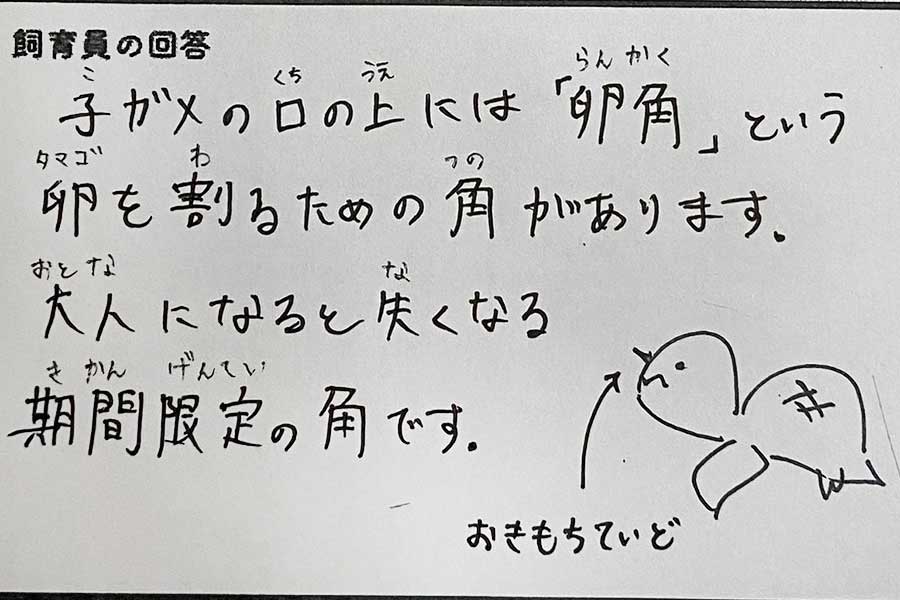 飼育員の回答
子ガメの口の上には「卵角」という
卵を割るための角があります。
大人になると失くなる
期間限定の角です。
おきもちていど